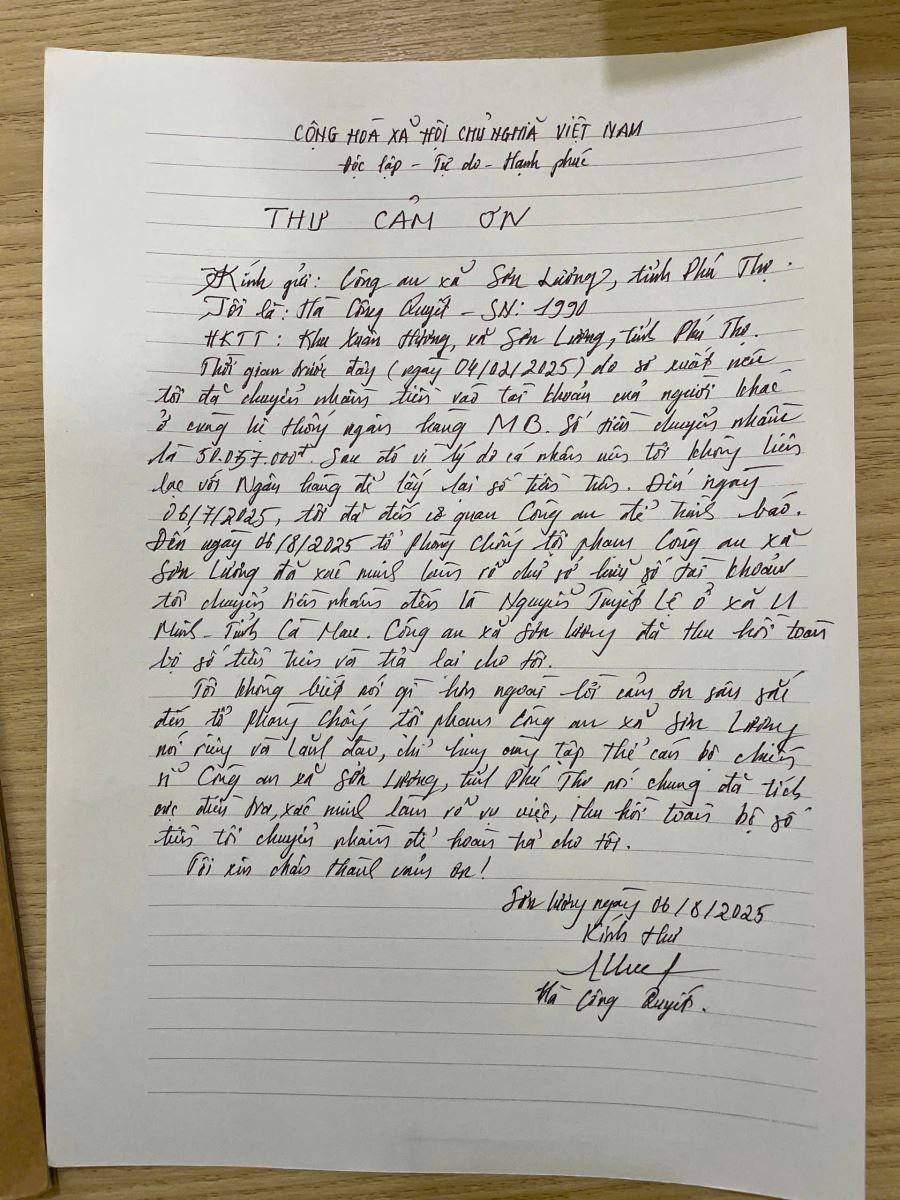 CỘNG HOÀ XẢ HỘI CHỦ NGHIÃ VIỆT NAM
Độc lập - Tự do - Hạnh phúc
THƯ CẢM ƠN
Kính gửi: Công an xã Sơn Lương, tỉnh Phú Thọ.
Tôi là: Hà Công Quyết - SN: 1990
HKTT: Khu Xuân Hương, xã Sơn Lương, tỉnh Phú Thọ.
Thời gian trước đây (ngày 04/02/2025) do sơ xuất nên
tôi đã chuyển nhầm tiền vào tài khoản của người khác
ở cùng hệ thống ngân hàng MB. Số tiền chuyển nhầm
là 50.057.000đ. Sau đó vì lý do cá nhân nên tôi không liên
lạc với Ngân hàng để lấy lại số tiền trên. Đến ngày
06/7/2025, tôi đã đến cơ quan Công an để trình báo.
Đến ngày 06/8/2025 tổ phòng chống tội phạm Công an xã
Sơn Lương đã xác minh làm rõ chủ sở hữu số tài khoản
tôi chuyển tiền nhầm đến là Nguyễn Tuyết Lệ ở xã U
Minh - Tỉnh Cà Mau. Công an xã Sơn Lương đã thu hồi toàn
bộ số tiền trên và trả lại cho tôi.
Tôi không biết nói gì hơn ngoài lời cảm ơn sâu sắc
đến tổ phòng chống tội phạm Công an xã Sơn Lương
nói riêng và Lãnh đạo, chỉ huy cùng tập thể cán bộ chiến
sĩ Công an xã Sơn Lương, tỉnh Phú Thọ nói chung đã tích
cực điều tra, xác minh làm rõ vụ việc, thu hồi toàn bộ số
tiền tôi chuyển nhầm để hoàn trả cho tôi.
Tôi xin chân thành cảm ơn!
Sơn lương ngày 06/8/2025
Kính thư
Hà Công Quyết.